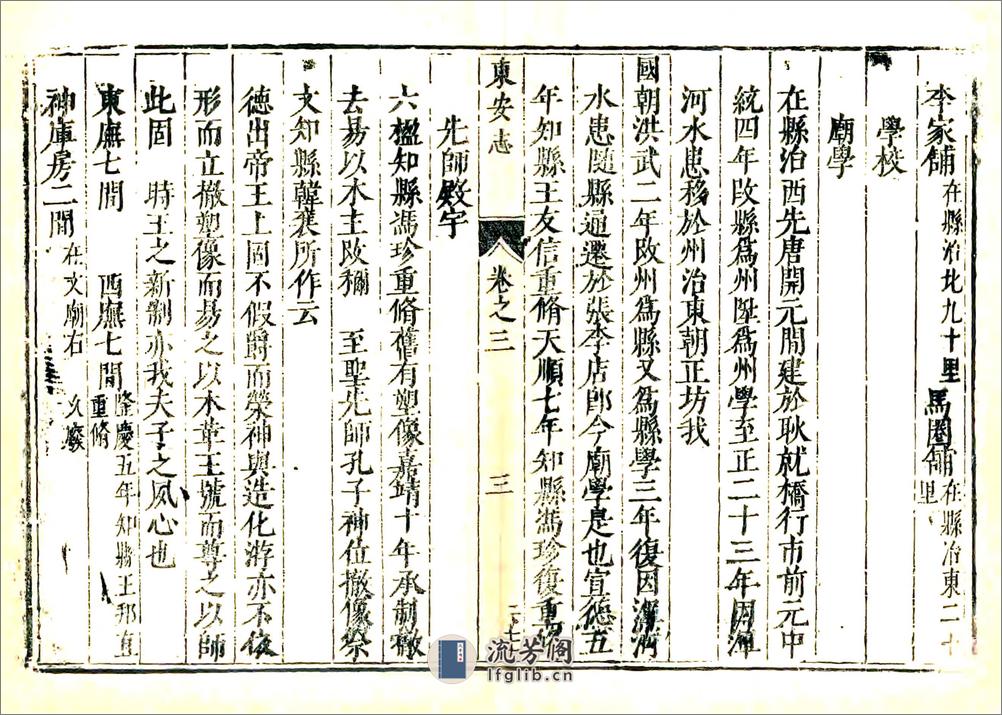 李家舖在縣治北九十里 馬圈舖在縣治東二十里
學校
廟學
在縣治西先唐開元間建於耿就橋行市前元中
統四年改縣爲州陞爲州學至正二十三年因渾
河水患移於州治東朝正坊我
國朝洪武二年改州爲縣又爲縣學三年復因渾河
水患隨縣通遷於張李店郎今廟學是也宣德五
年知縣王友信重脩天順七年知縣馮珍復重
東安志 卷之三 三
先師殿宇
六楹知縣馮珍重脩舊有塑像嘉靖十年承制撤
去易以木主改稱 至聖先師孔子神位撤像祭
文知縣韓襃所作云
德出帝王上固不假爵而榮神與造化游亦不依
形而立撤塑像而易之以木革王號而尊之以師
此固 時王之新制亦我夫子之夙心也
東廡七間 西廡七間隆慶五年知縣王邦直重脩
神庫房二間在文廟右 久廢
流芳阁
lfglib.cn